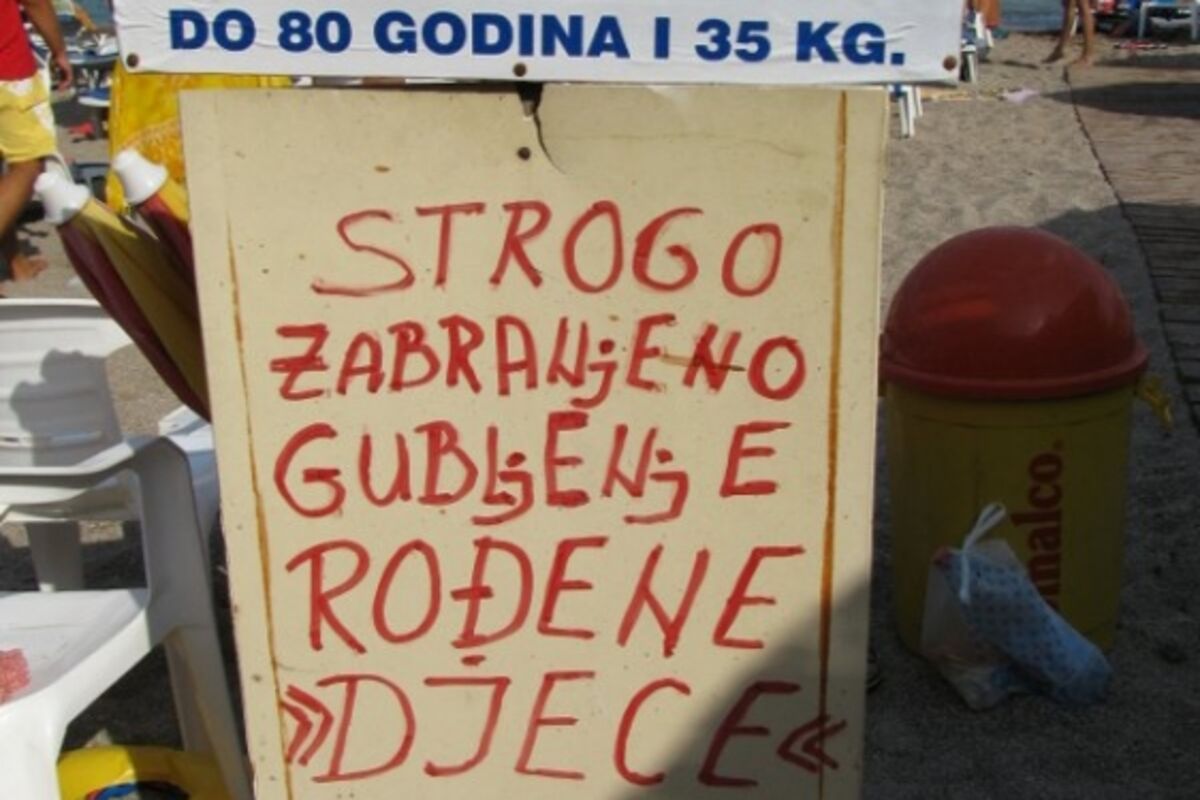 DO 80 GODINA I 35 KG.
STROGO
ZABRANjENO
GUBLjENjE
ROĐENE
»DJECE«
inalco.